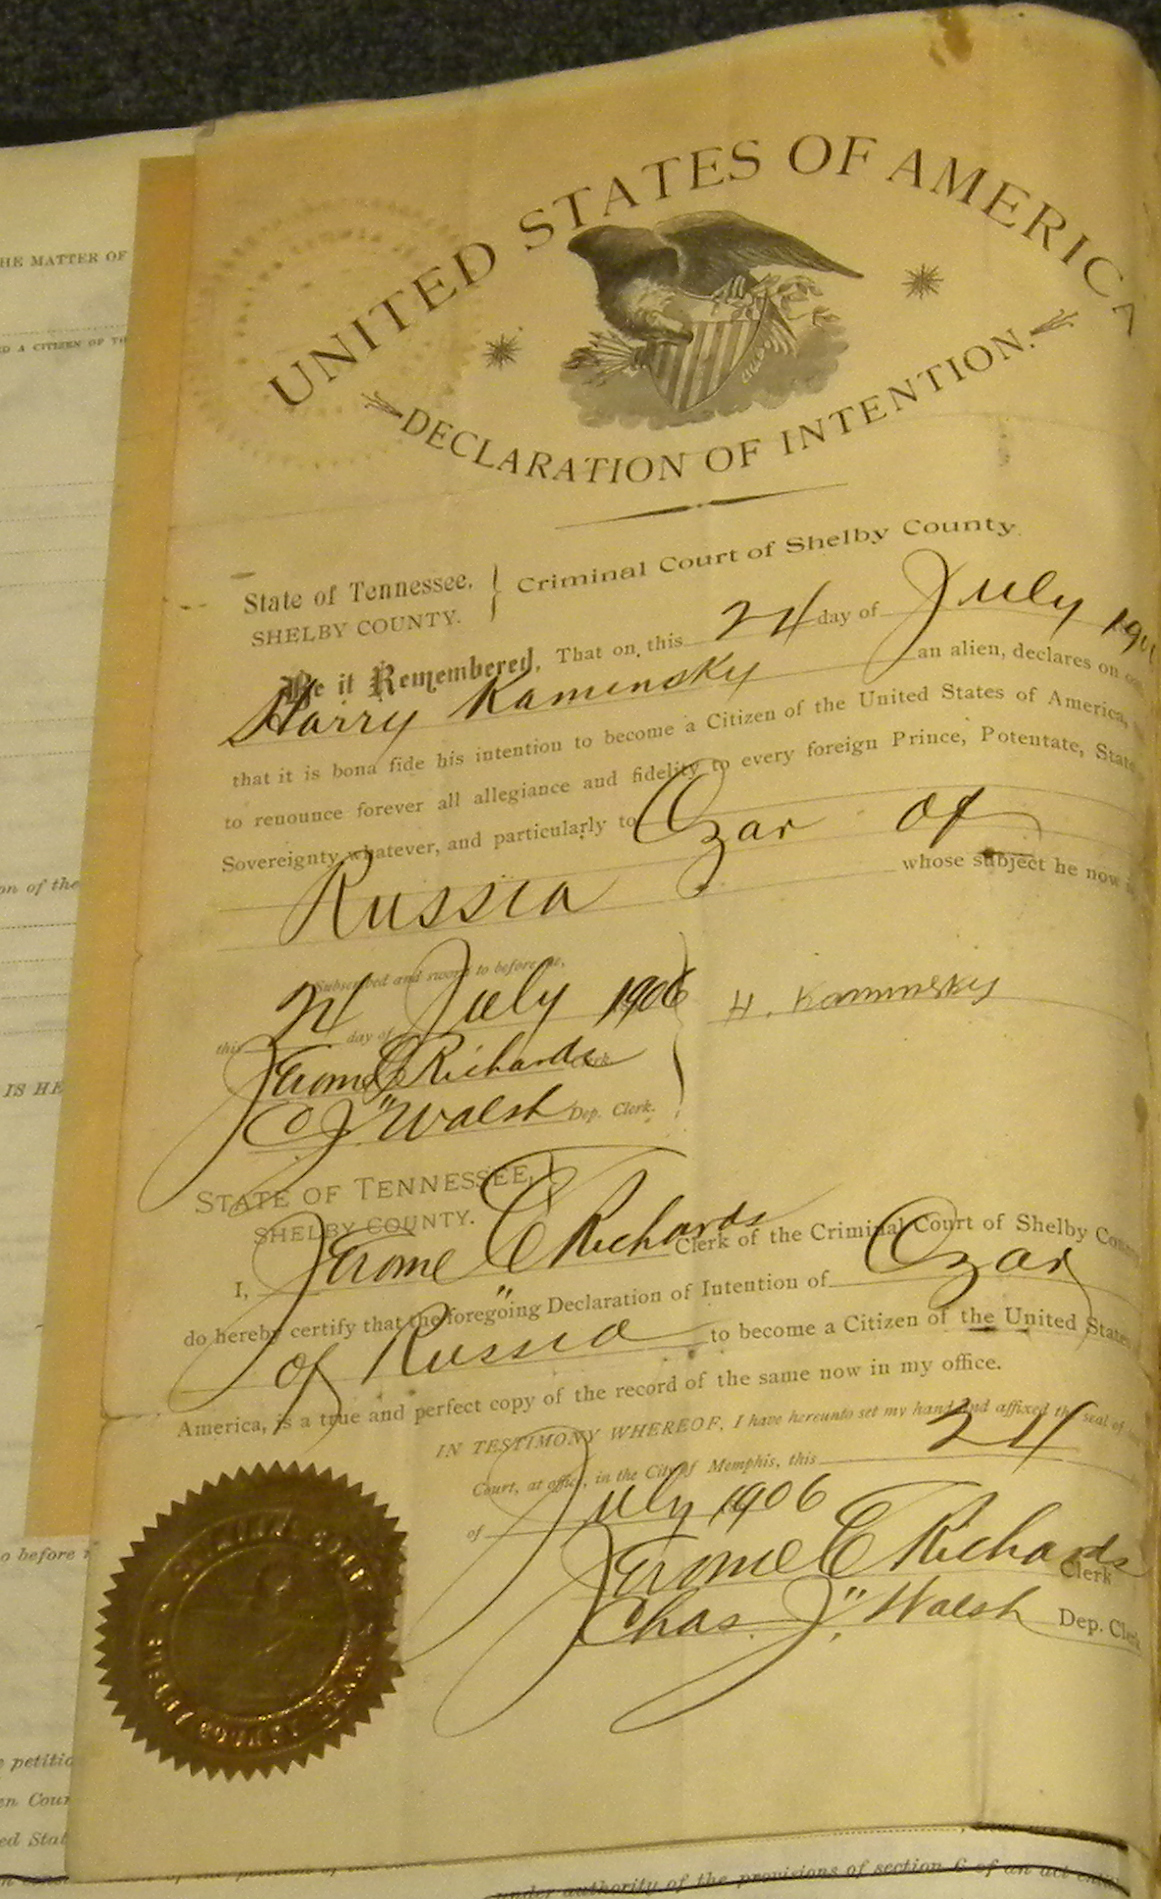 UNITED STATES OF AMERICA
DECLARATION OF INTENTION.
State of Tennessee,
SHELBY COUNTY.
Criminal Court of Shelby County
Be it Remembered, That on this 24 day of July
Harry Kaminsky an alien, declares on
that it is bona fide his intention to become a Citizen of the United States of America,
to renounce forever all allegiance and fidelity to every foreign Prince, Potentate, State
Sovereignty whatever, and particularly to Czar of
Russia whose subject he now
Subscribed and sworn to before me,
this 24 day of July 1906
H. Kaminsky
Jerome E Richards Clerk.
C J Walsh Dep. Clerk.
STATE OF TENNESSEE,
SHELBY COUNTY.
I, Jerome E Richards Clerk of the Criminal Court of Shelby
do hereby certify that the foregoing Declaration of Intention of Czar
of Russia to become a Citizen of the United States
America, is a true and perfect copy of the record of the same now in my office.
IN TESTIMONY WHEREOF, I have hereunto set my hand and affixed the seal of
Court, at office, in the City of Memphis, this 24
of July 1906
Jerome E Richards Clerk
Chas. J. Walsh Dep. Clerk
CRIMINAL COURT
SHELBY COUNTY TENN.
HE MATTER OF
D A CITIZEN OF
on of the
IS HE
o before
petitio
en Cour
ed Stat
under authority of the provisions of section 6 of an act